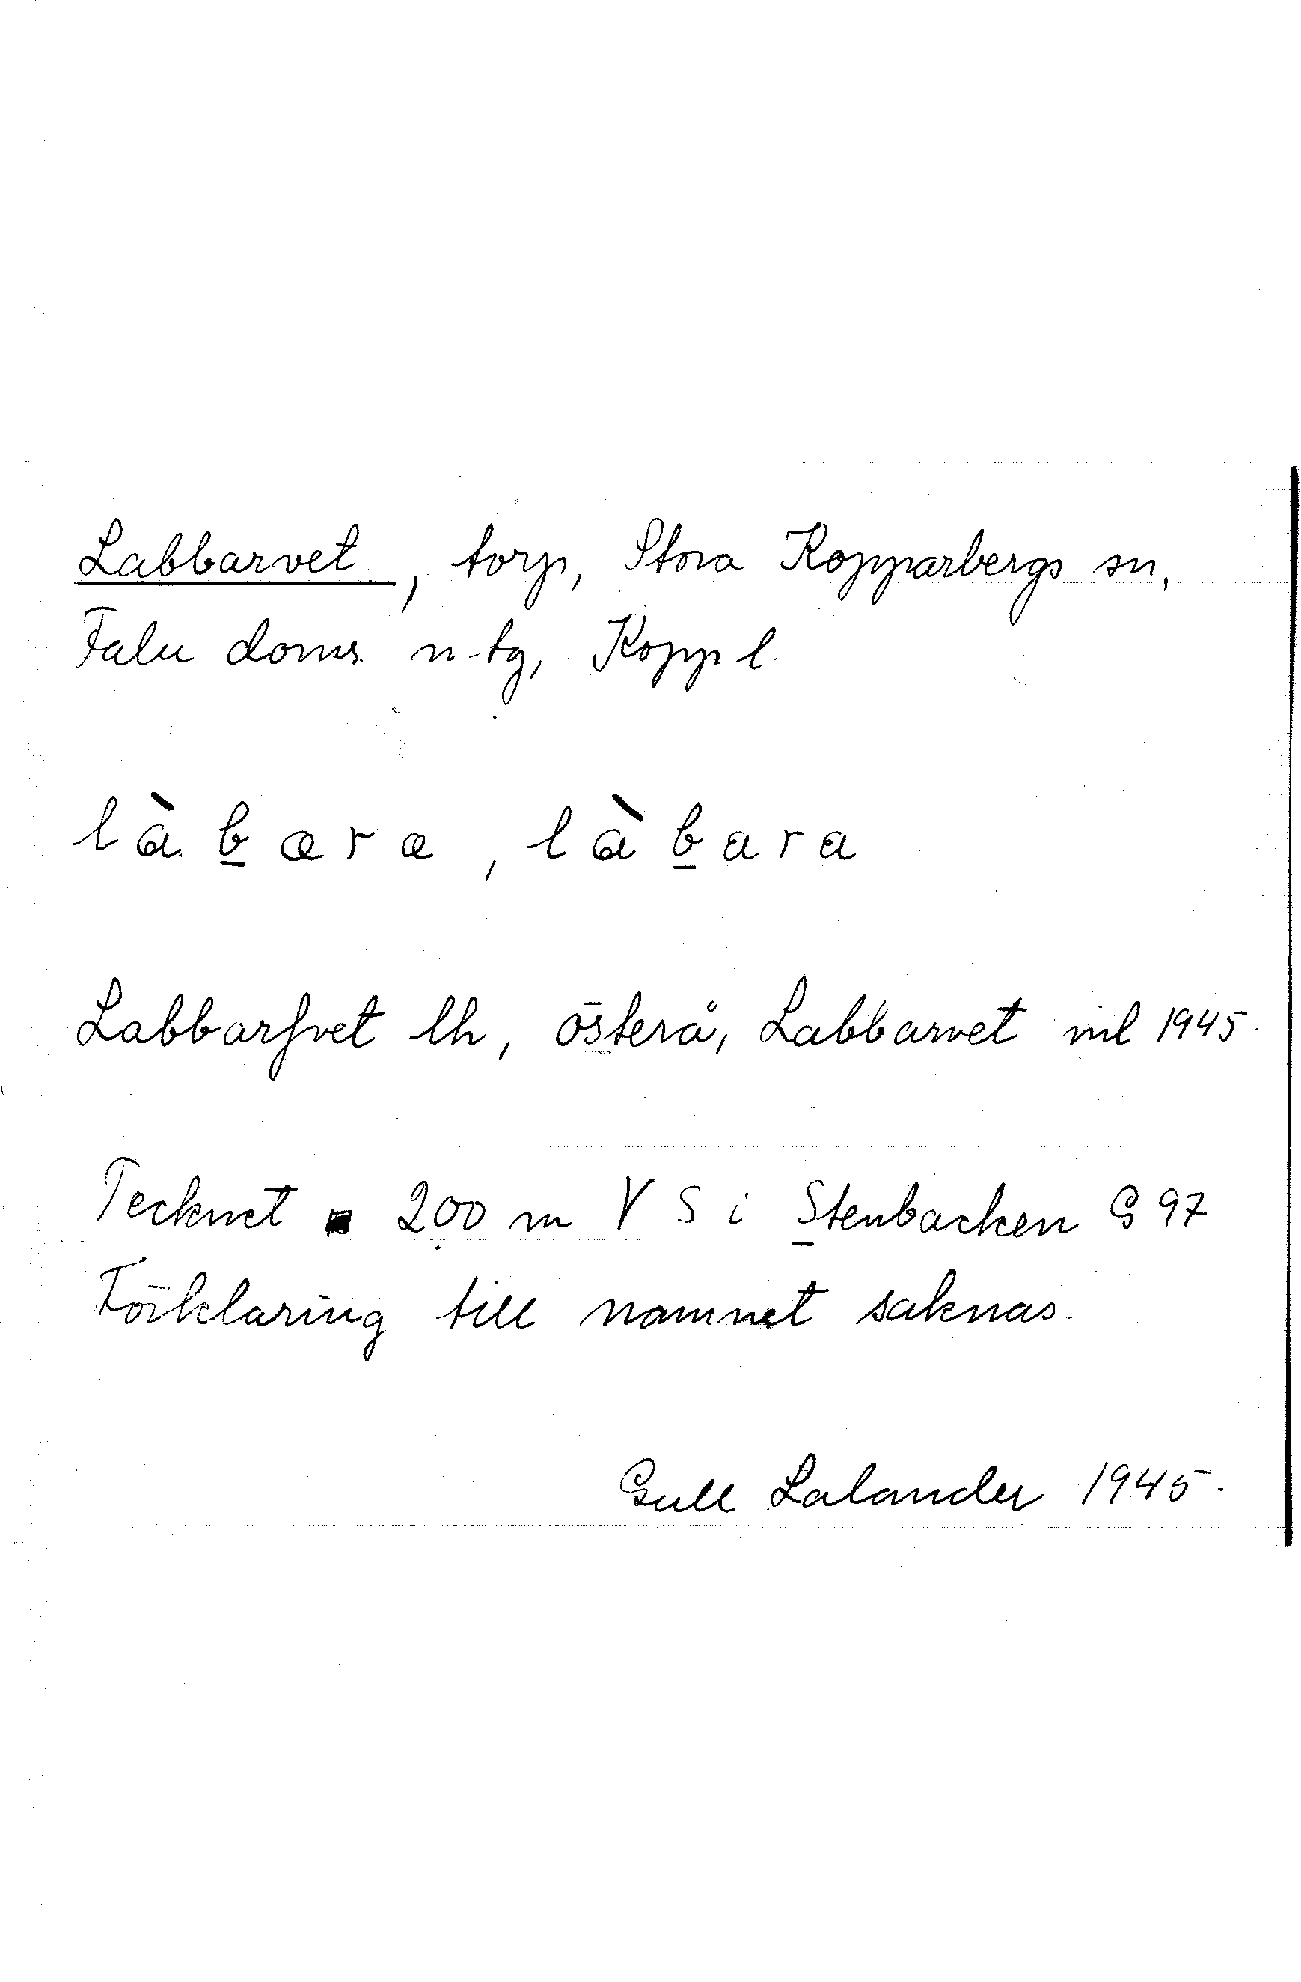 Labbarvet, torp, Stora Kopparbergs sn,
Falu doms. n-tg, Kopp l.
làb̲ara, làb̲ara
Labbarfvet lh, österå, Labbarvet ml 1945.
Tecknet ▪ 200 m V S i Stenbacken G 97
Förklaring till namnet saknas.
Gull Lalander 1945.